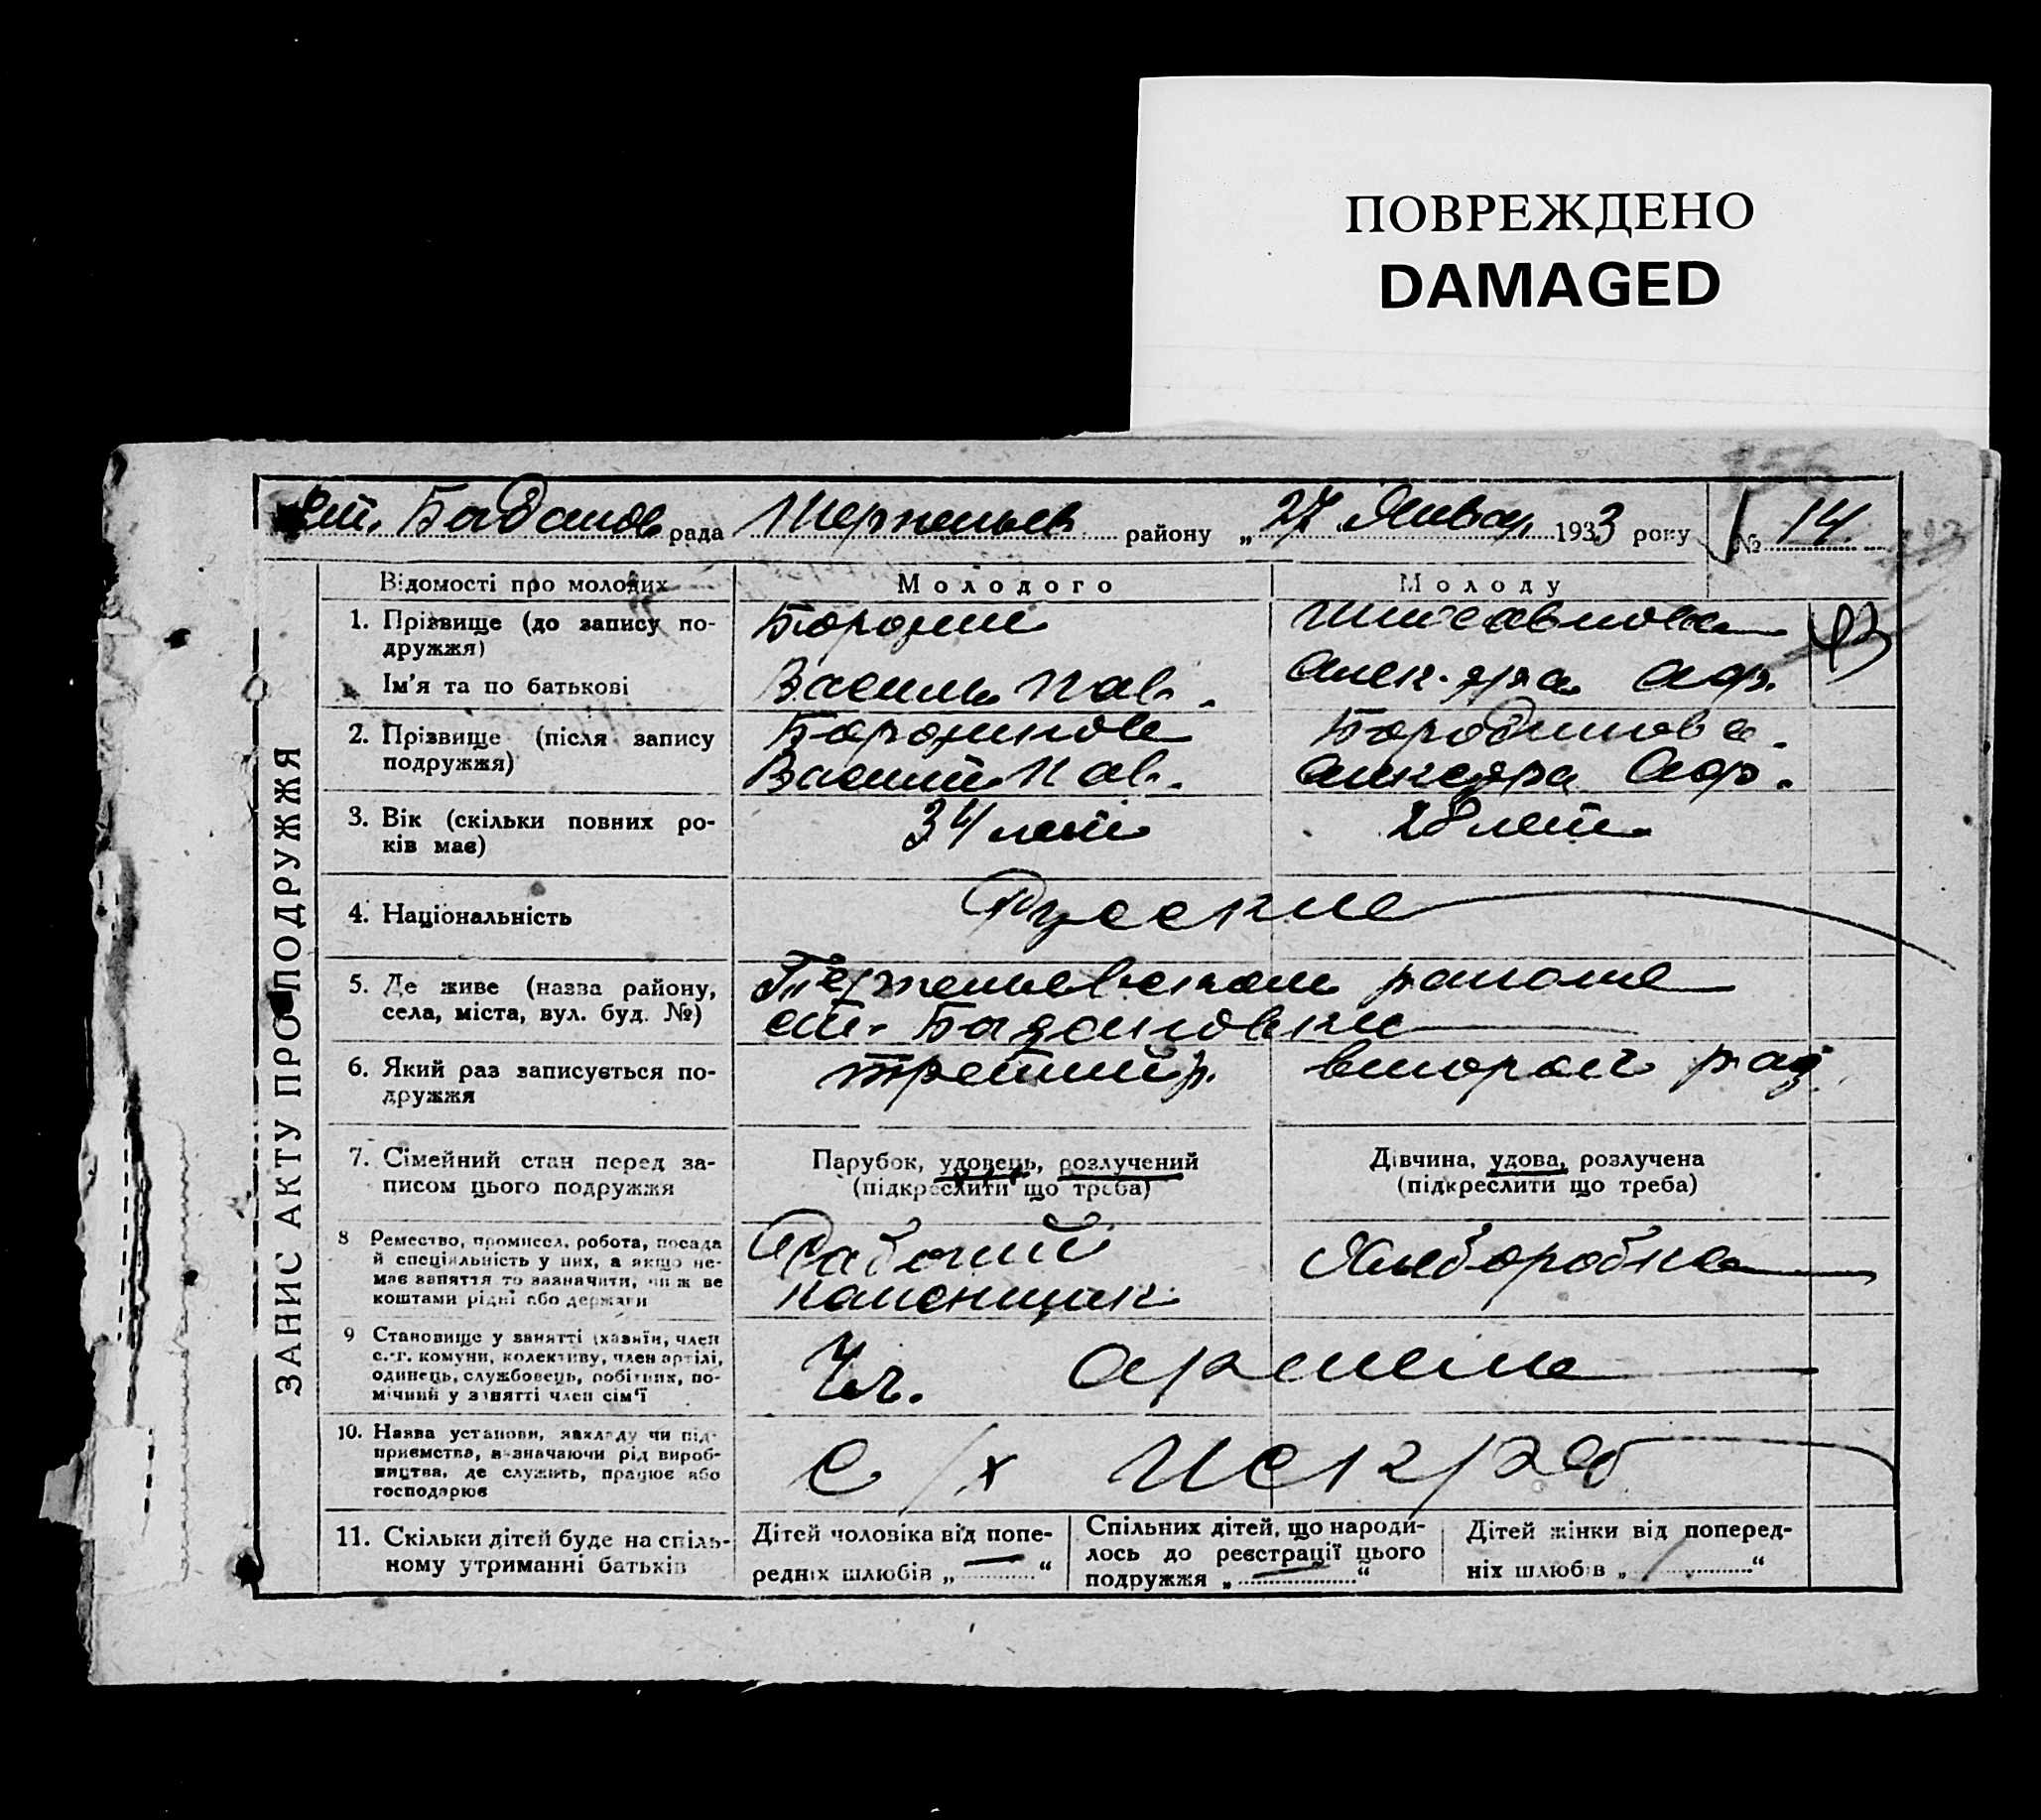 ПОВРЕЖДЕНО
DAMAGED
156
ст. Богданов рада района району „27 Января 1933 року № 14.
ЗАПИС АКТУ ПРО ПОДРУЖЖЯ
Відомості про молодих
Молодого
Молоду
1. Прізвище (до запису по-
дружжя)
Ім'я та по батькові
Бородин
Василь Пав.
Алек-дра Афр.
2. Прізвище (після запису
подружжя)
Василий Пав.
Бородинова.
Алексдра Афр.
3. Вік (скільки повних ро-
ків має)
34 лет
28 лет
4. Національність
Русские
5. Де живе (назва району,
села, міста, вул. буд. №)
районе
ст. Богдановки
6. Який раз записується по-
дружжя
третий р.
вторый раз
7. Сімейний стан перед за-
писом цього подружжя
Парубок, удовець, розлучений
(підкреслити що треба)
Дівчина, удова, розлучена
(підкреслити що треба)
8 Ремество, промисел, робота, посада
й спеціяльність у них, а якщо не-
має заняття то зазначити, чи ж ве
коштами рідні або держави
Рабочий
каменщик
Хлеборобка
9 Становище у занятті (хазяїн, член
с.-г. комуни, колективу, член артілі,
одинець, службовець, робітник, по-
мічний у занятті член сім'ї
Чл. артели
10. Назва установи, закладу чи під-
приємства, взначаючи рід вироб-
ництва, де служить, працює або
господарює
с/х Искра
11. Скільки дітей буде на спіль-
ному утриманні батьків
Дітей чоловіка від попе-
редніх шлюбів „ — “
Спільних дітей, що народи-
лось до реєстрації цього
подружжя „ — “
Дітей жінки від поперед-
ніх шлюбів „ “